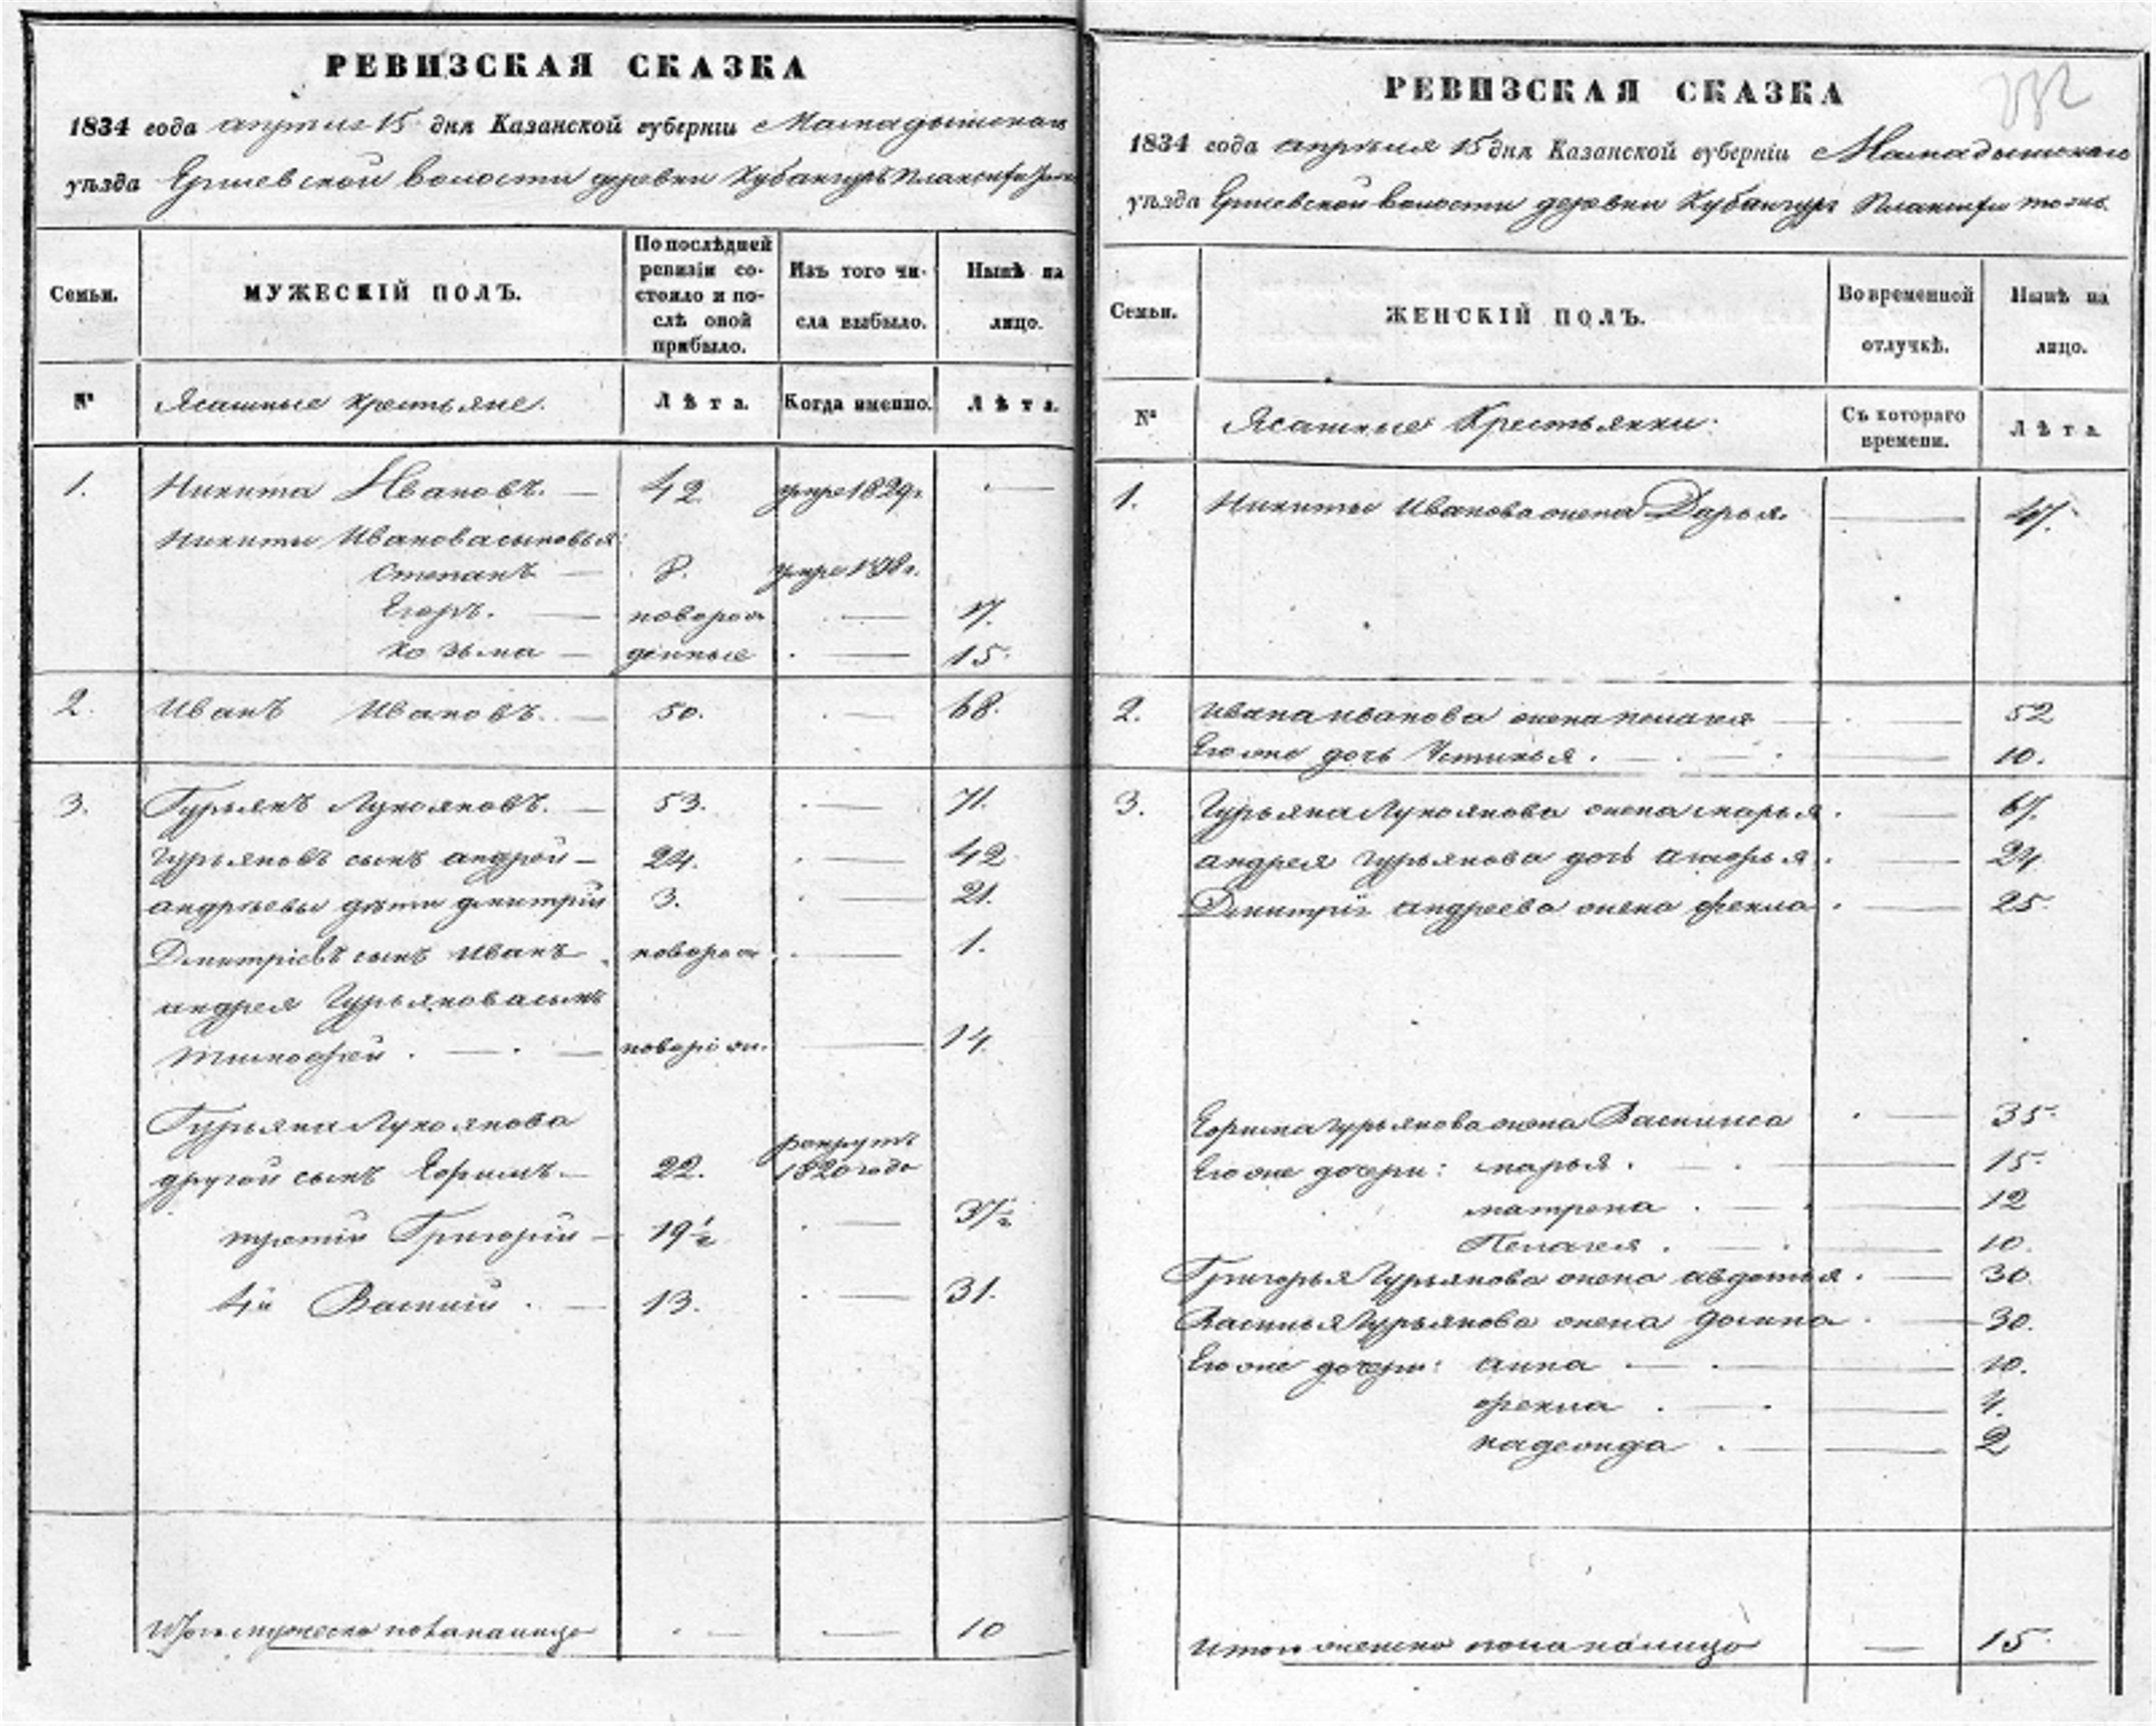 РЕВИЗСКАЯ СКАЗКА
1834 года апреля 15 дня Казанской губерніи Мамадышскаго
уѣзда волости деревни
Семьи.
МУЖЕСКІЙ ПОЛЪ.
По послѣдней
ревизіи со-
стояло и по-
слѣ оной
прибыло.
Изъ того чи-
сла выбыло.
Нынѣ на
лицо.
№
Ясашные крестьяне.
Лѣта.
Когда именно.
Лѣта.
1. Никита Ивановъ. — 42. умре 1829г. —
Никиты Иванова сыновья:
Степанъ — 8.
Егоръ. — новорож — 17.
Козьма — денные — 15.
2. Иванъ Ивановъ. — 50. — 68.
3. Гурьянъ Лукояновъ. — 53. — 71.
Гурьяновъ сынъ андрей — 24. — 42
андреевы дѣти дмитрій 3. — 21.
Дмитріевъ сынъ Иванъ новорож — 1.
андрея Гурьянова сынъ
тимофей — — 14.
Гурьяна Лукоянова
другой сынъ Ефимъ — 22. рекрутъ
1820 года
третій Григорій — 19½ — 37½
4й Василій — 13. — 31.
Итого мужеска пола налицо — — 10
РЕВИЗСКАЯ СКАЗКА
1834 года апреля 15 дня Казанской губерніи Мамадышскаго
уѣзда волости деревни тожъ.
Семьи.
ЖЕНСКІЙ ПОЛЪ.
Во временной
отлучкѣ.
Нынѣ на
лицо.
№
Ясашные Крестьянки.
Съ котораго
времени.
Лѣта.
1. Никиты Иванова жена Дарья. — 47.
2. Ивана иванова жена пелагея — 52
Его же дочь Устинья. — 10.
3. Гурьяна Лукоянова жена марья. — 67.
андрея гурьянова дочь — 24.
Дмитрія андреева жена фекла — 25.
Ефима гурьянова жена Василиса — 35.
Его же дочери: марья. — 15.
матрена — 12
Пелагея. — 10.
Григорья Гурьянова жена авдотья. — 30.
Василья Гурьянова жена домна — 30.
Его же дочери: анна — 10.
фекла — 4.
надежда — 2
Итого женска пола налицо — 15.